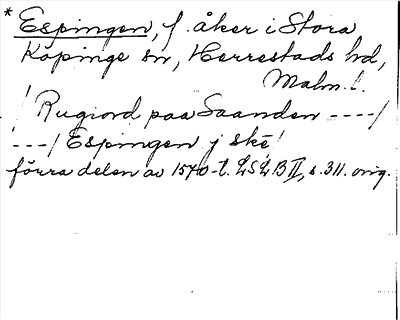 * Espingen, f. åker i Stora
Köpinge sn, Herrestads hd,
Malm. l.
/ Rugiord paa Saanden ----/
---/ Espingen j ské!
förra delen av 1570-t. LSLB II, s. 311. orig.